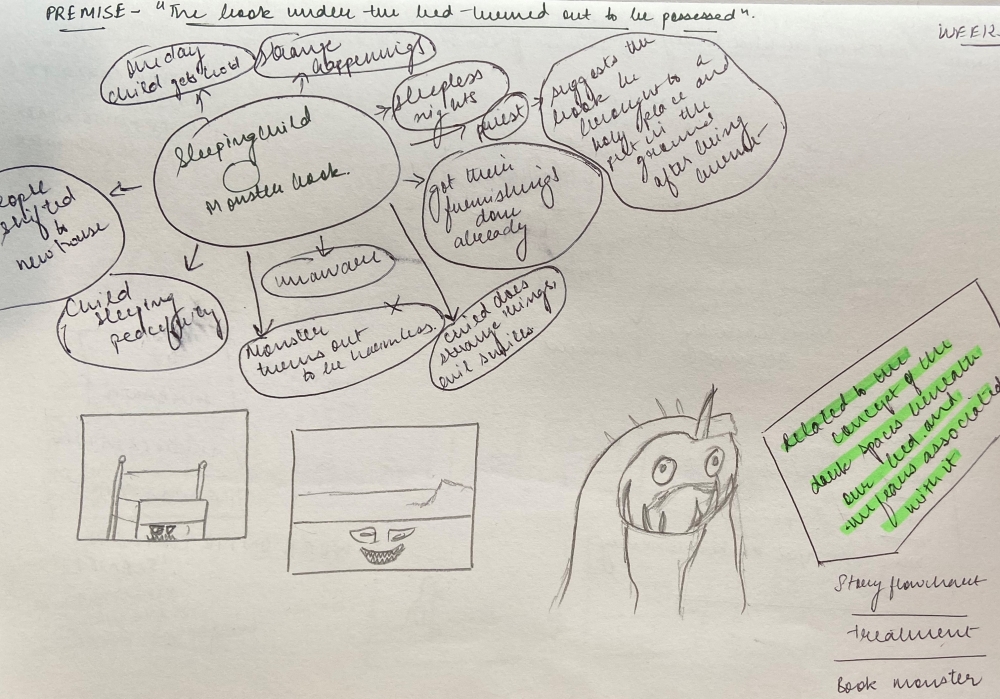 PREMISE - "The book under the bed turned out to be possessed".
WEEK
one day
child gets hold
strange
happenings
sleepless
nights
priest
suggests the
book be
brought to a
holy place and
put in the
ground
after being
burnt
Sleeping child
Monster book.
people
shifted
to
new house
got their
furnishings
done
already
unaware
Child
sleeping
peacefully
Monster
turns out
to be harmless.
child does
strange things,
evil smiles
Related to the
concept of the
dark spaces beneath
our bed and
fears associated
with it
Story flowchart
treatment
Book monster